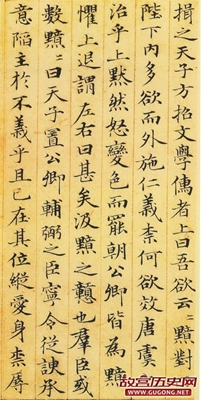 揖之天子方招文學儒者上曰吾欲云〻黯對
陛下内多欲而外施仁義柰何欲效唐虞
治乎上默然怒變色而罷朝公卿皆為黯
懼上退謂左右曰甚矣汲黯之戇也羣臣或
數黯〻曰天子置公卿輔弼之臣寧令從諛承
意陷主於不義乎且已在其位縱愛身柰辱
故宫历史网
WWW.GUGONG.NET